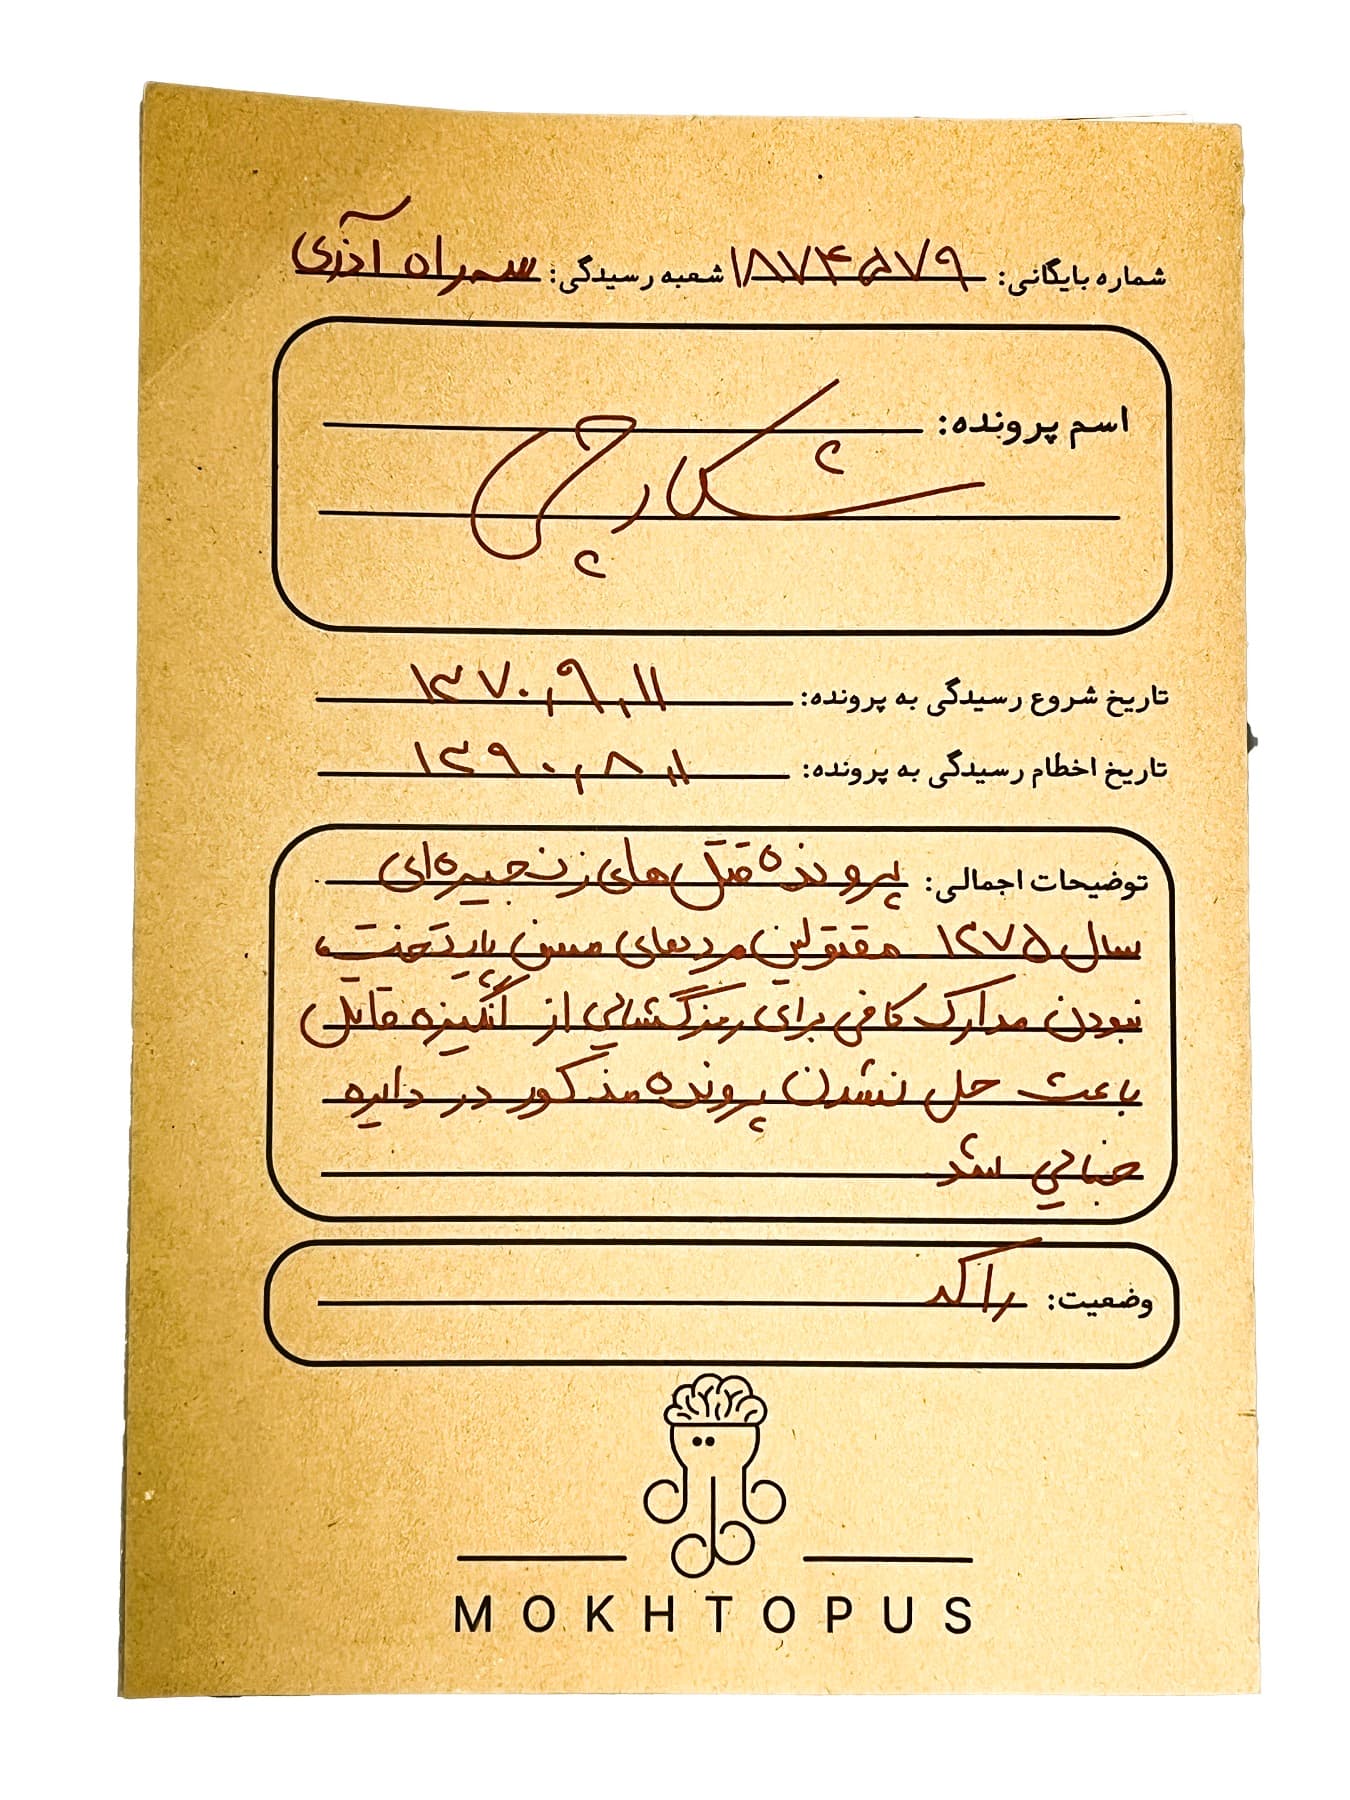 شماره بایگانی: ۱۸۷۴۵۷۹ شعبه رسیدگی: سه‌راه آذری
اسم پرونده:
شکارچی
تاریخ شروع رسیدگی به پرونده: ۱۳۷۰,۹,۱۱
تاریخ اخطام رسیدگی به پرونده: ۱۳۹۰,۸,۱۱
توضیحات اجمالی: پرونده قتل‌های زنجیره‌ای
سال ۱۳۷۵. مقتولین مردهای مسن پایتخت،
نبودن مدارک کافی برای رمزگشایی از انگیزه قاتل
باعث حل نشدن پرونده مذکور در دایره
جنایی شد.
وضعیت: راکد
MOKHTOPUS